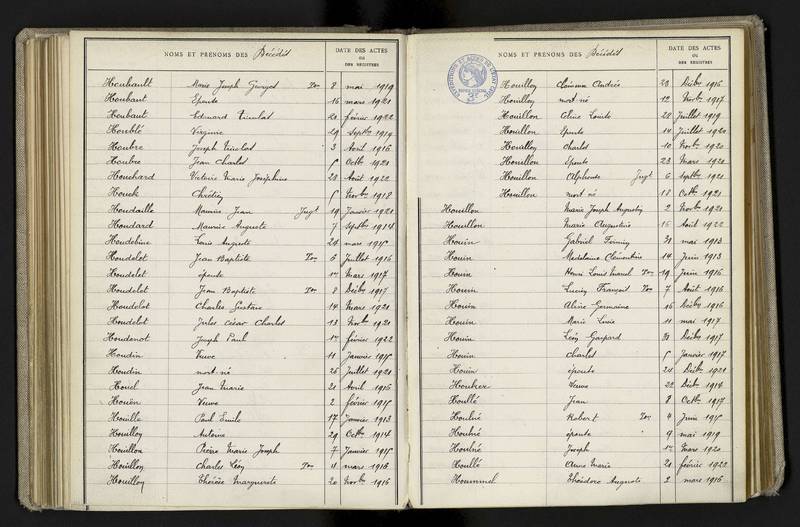 NOMS ET PRÉNOMS DES Décédés DATE DES ACTES OU DES REGISTRES
Houbault Marie Joseph 8 mai 1919
Houbaut Epouse 16 mars 1921
Houbaut Edouard Nicolas 21 février 1922
Houblé Virginie 29 Septbre 1919
Houbre Joseph Nicolas 3 Avril 1916
Houbre Jean Charles Octbre 1921
Houchard Victoire Marie Joséphine 28 Août 1922
Houck Chrétien Novbre 1918
Houdaille Maurice Jean Jugt 19 Janvier 1921
Houdard Maurice Auguste 7 Septbre 1914
Houdebine Louis Auguste 24 mars 1915
Houdelot Jean Baptiste Ton 6 Juillet 1916
Houdelet épouse 1er mars 1917
Houdelot Jean Baptiste Ton 8 Décbre 1917
Houdelot Charles Gustave 14 Mars 1921
Houdelot Jules César Charles 13 Novbre 1921
Houdenot Joseph Paul 1er février 1922
Houdin Veuve 11 Janvier 1915
Houdin mort né 26 Juillet 1921
Houel Jean Marie 21 Avril 1916
Houën Veuve 2 février 1915
Houille Paul Emile 17 Janvier 1913
Houilloy Antoine 29 Octbre 1914
Houillon Pierre Marie Joseph 7 Janvier 1915
Houillon Charles Léon Ton 4 mars 1916
Houillon Thérèse Marguerite 20 Novbre 1916
NOMS ET PRÉNOMS DES Décédés DATE DES ACTES OU DES REGISTRES
Houillon André 23 Décbre 1916
Houilloy mort né 12 Novbre 1917
Houillon Aline Louise 28 Juillet 1919
Houillon Epouse 14 Juillet 1920
Houilloy Charles 10 Novbre 1920
Houillon Epouse 23 Mars 1920
Houillon Alphonse Jugt 6 Septbre 1921
Houillon mort né 18 Octbre 1921
Houillon Marie Joseph 2 Novbre 1921
Houillon Marie Augustine 16 Août 1922
Houin Gabriel Firmin 31 mai 1913
Houin Madeleine Clémentine 14 Juin 1913
Houin Henri Louis Marcel Ton 19 Juin 1916
Houin Lucien François Ton 7 Août 1916
Houin Aline Germaine 16 Décbre 1916
Houin Marie Lucie 11 mai 1917
Houin Léon Gaspard 31 Décbre 1917
Houin Charles Janvier 1917
Houin épouse 24 Décbre 1921
Houker Veuve 22 Décbre 1914
Houllé Jean 8 Octbre 1917
Houlné Robert Ton 4 Juin 1915
Houlné épouse 9 mai 1919
Houlné Joseph 1er Mars 1920
Houllé Anne Marie 21 février 1922
Hoummel Théodore Auguste 2 mars 1916